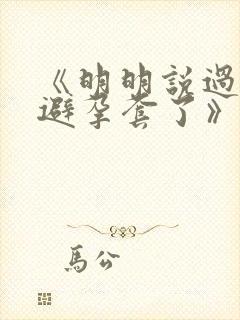 《明明說過
避孕套了》
馬公